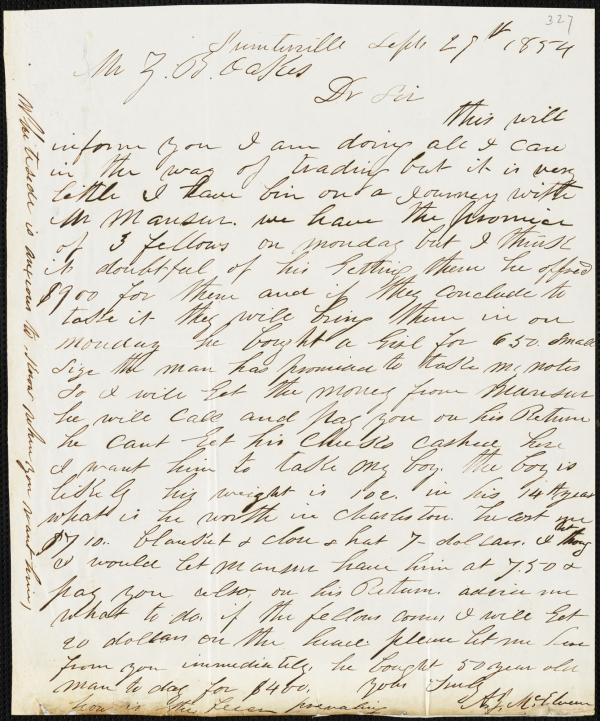 327
Sumterville Sept 29th 1854
Mr Z. B. Oakes
Dr Sir
This will
inform you I am doing all I can
in the way of trading but it is very
little I have bin on a Journey with
Mr Mansur. we have the promice
of 3 fellows on monday but I think
it doubtful of his getting them he offred
$900 for them and if they conclude to
take it they will bring them in on
monday he bought a Girl for 650. small
size the man has promised to take my notes
So I will get the money from Mansur
he will call and pay you on his Return
he cant get his checks cashed here
I want him to take my boy. the boy is
likely his weight is 102. in his 14th year
what is he worth in Charleston. he cost me
$710. blanket & close & hat 7 dollars. I thought
I would let mansur have him at 7.50 &
pay you also on his Return. advice me
what to do. if the fellows comes I will get
20 dollars on the head. please let me hear
from you immediately. he bought 50 year old
man to day for $400. yours Truly
A. J. McElveen
how is the fever
Whiteside is anxious to know when you want him,